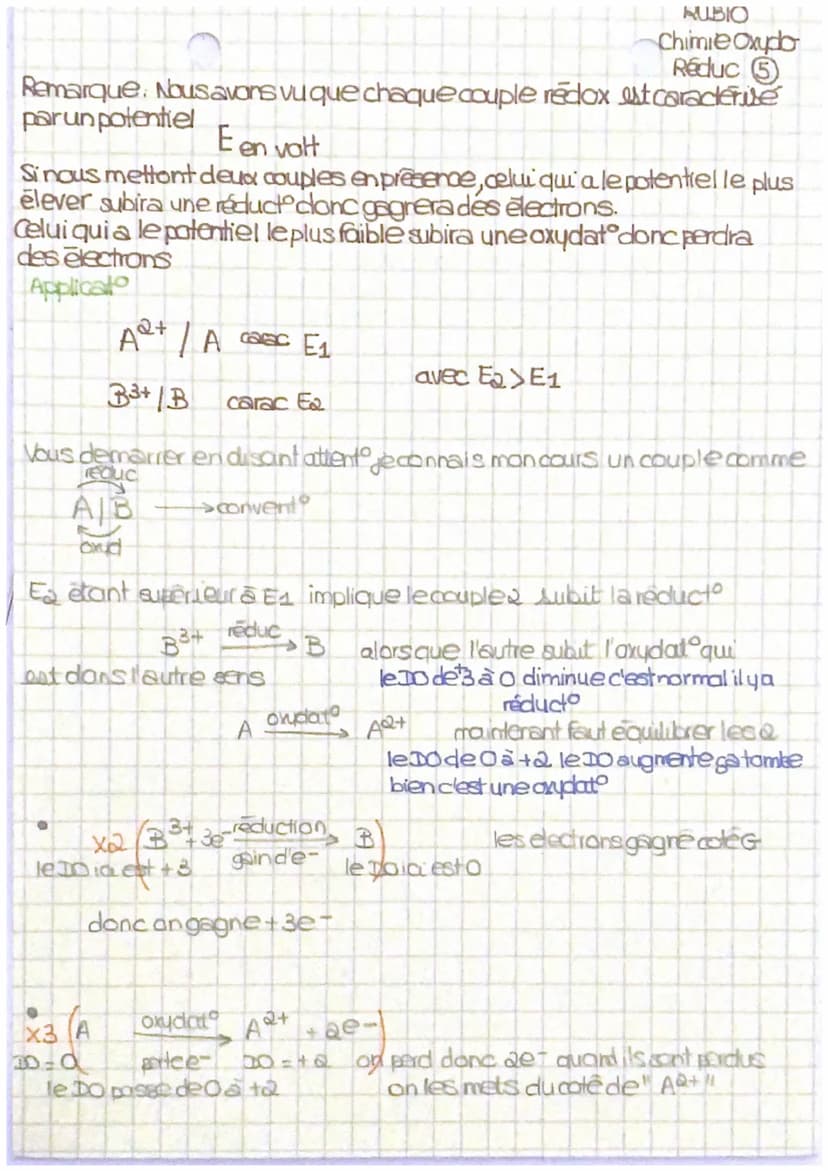 RUBIO
Chimie Oxydo
Réduc ⑤
Remarque. Nous avons vu que chaque couple rédox est caractérisé
par un potentiel
E en volt
Si nous mettont deux couples en présence, celui qui a le potentiel le plus
élever subira une réduct° donc gagnera des électrons.
Celui qui a le potentiel le plus faible subira une oxydat° donc perdra
des électrons
Applicat°
A2+ / A carac E1
avec E2 > E1
B3+ / B carac E2
Vous demarrer en disant attent° je connais mon cours un couple comme
réduc
A / B → convent°
oxyd
E2 étant supérieur à E1 implique le couple 2 subit la réduct°
B3+ réduc → B alors que l'autre subit l'oxydat° qui
est dans l'autre sens le DO de +3 à 0 diminue c'est normal il y a
réduct°
A oxydat° → A2+ maintenant faut équilibrer les 2
le DO de 0 à +2 le DO augmente ça tombe
bien c'est une oxydat°
• x2 (B3+ + 3e- réduction → B) les electrons gagné coté G
le DO ici est +3 gain d'e- le DO ici est 0
donc on gagne +3e-
• x3 (A oxydat° → A2+ + 2e-)
DO = 0 perte e- DO = +2 on perd donc 2e- quand ils sont perdus
le DO passe de 0 à +2 on les mets du coté de "A2+"